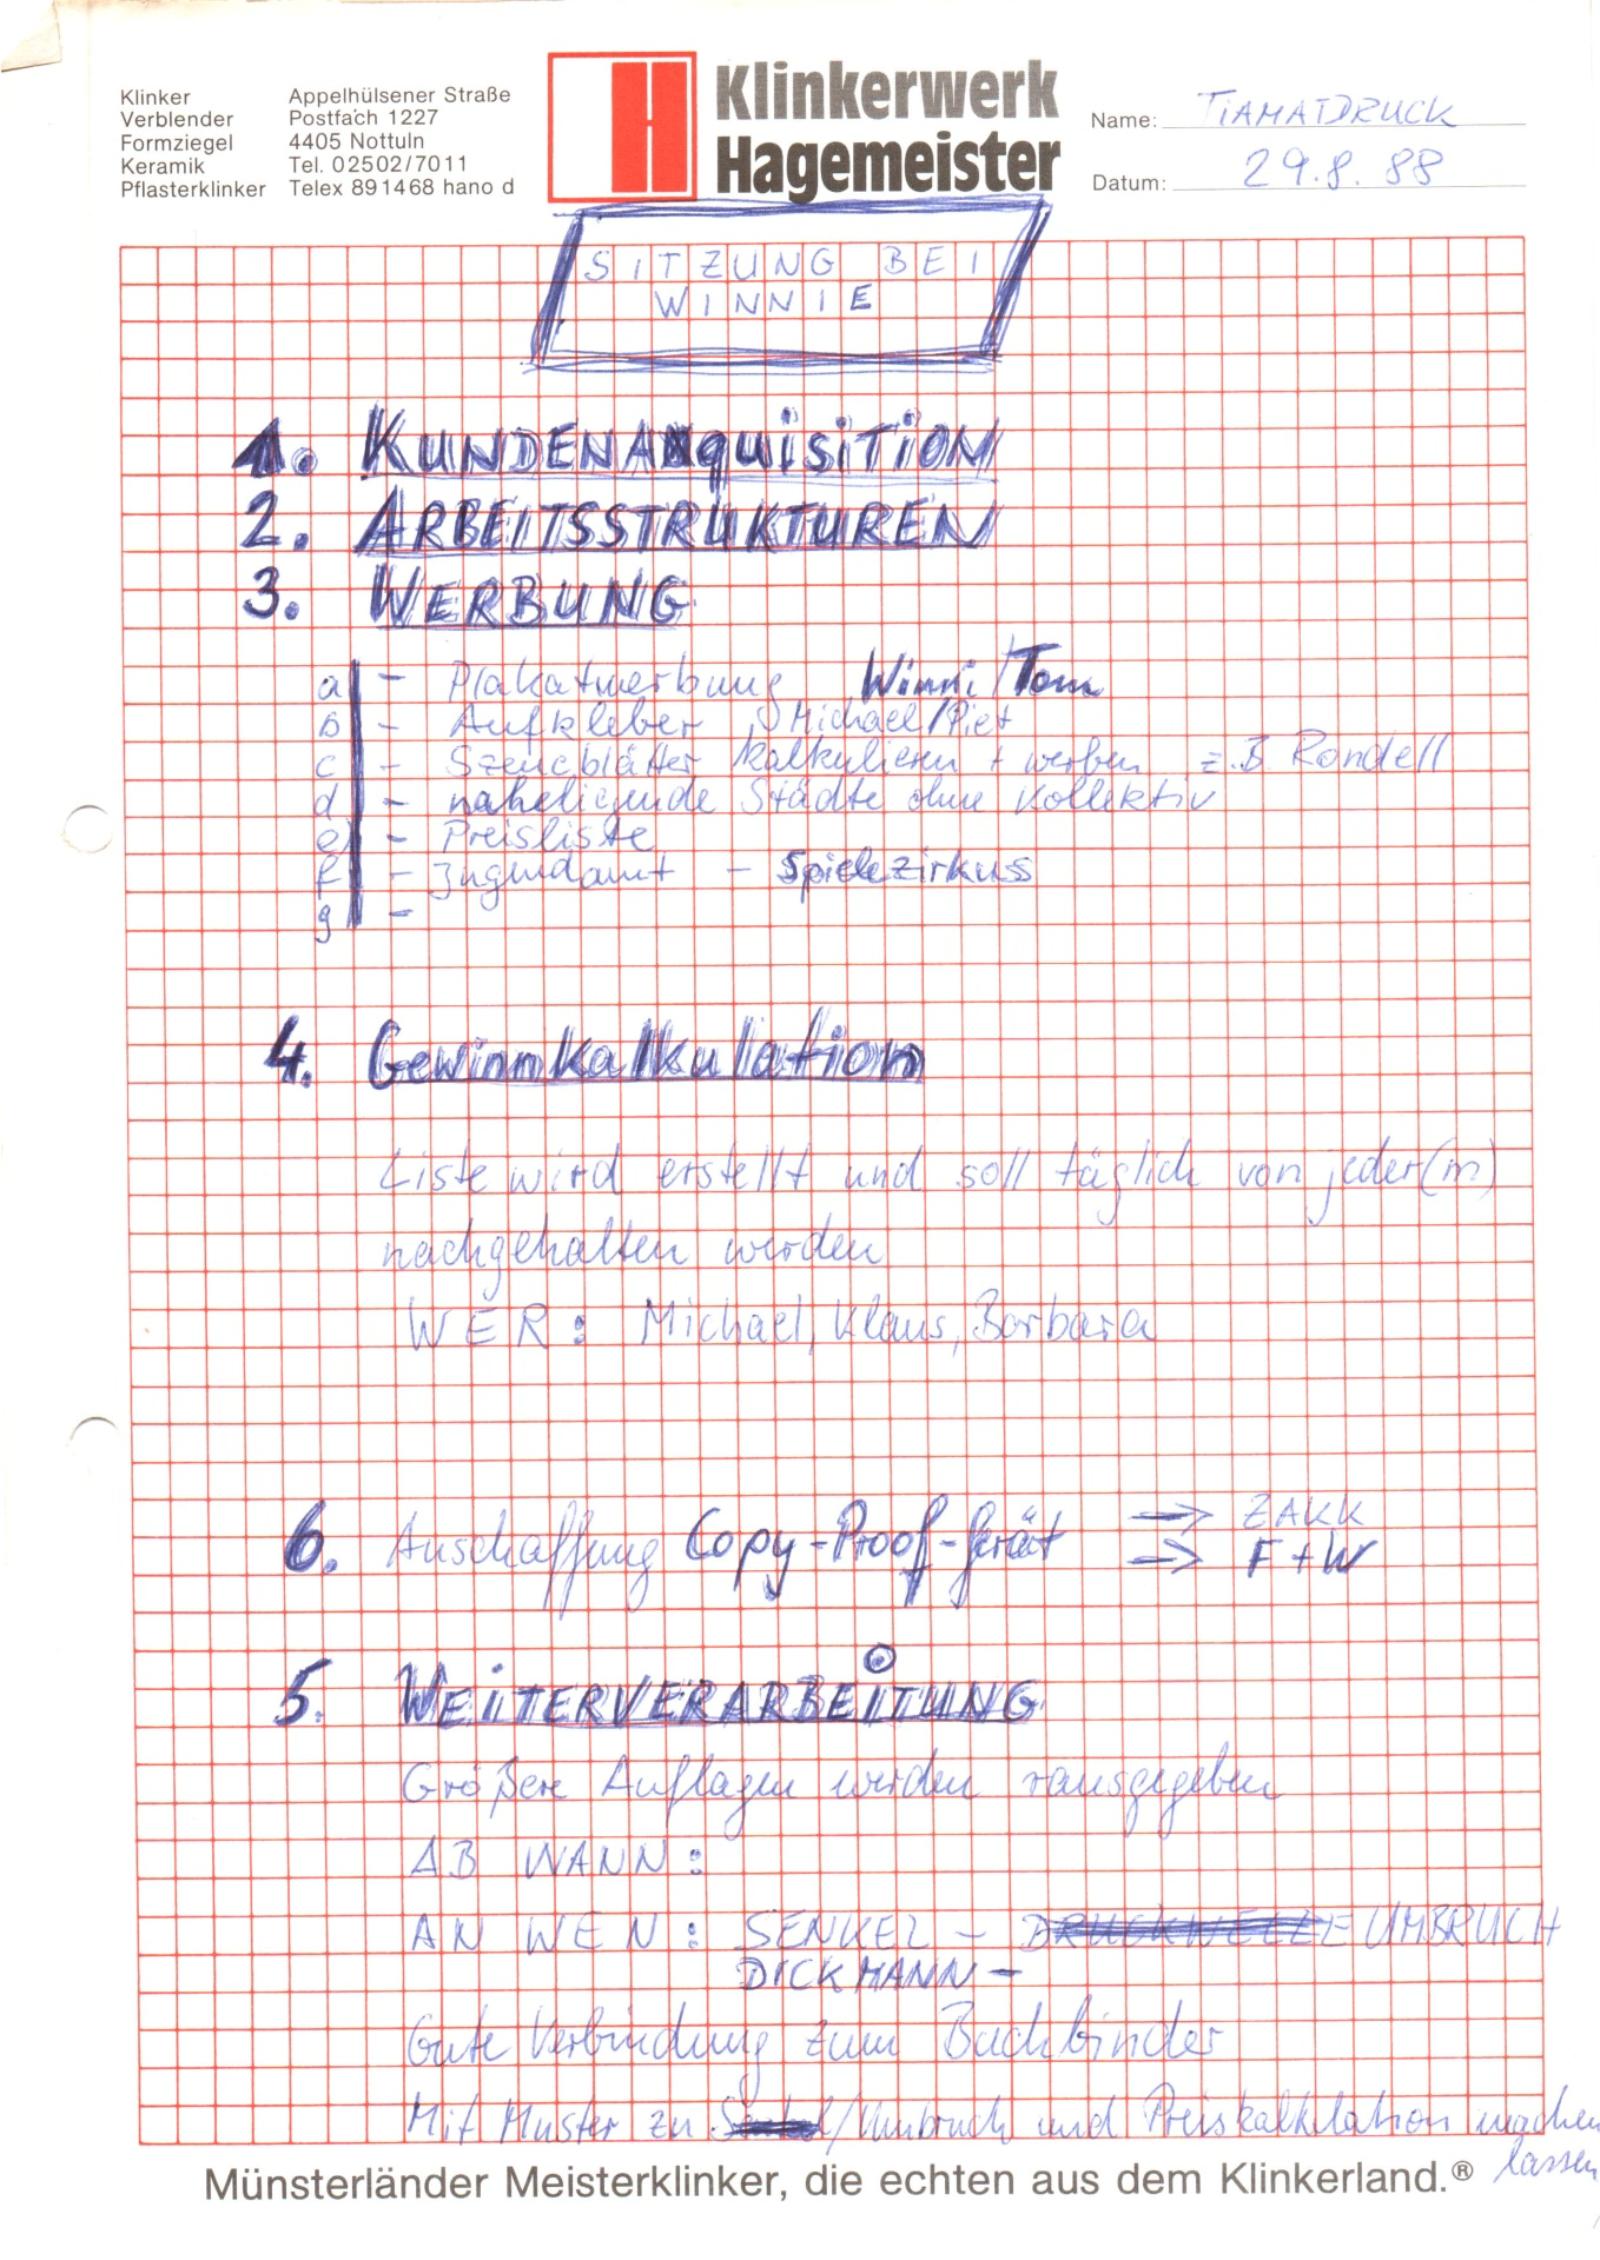 Klinker
Verblender
Formziegel
Keramik
Pflasterklinker
Appelhülsener Straße
Postfach 1227
4405 Nottuln
Tel. 02502/7011
Telex 891468 hano d
Klinkerwerk
Hagemeister
Name: TIAMATDRUCK
Datum: 29.8.88
SITZUNG BEI
WINNIE
1. KUNDENAQUISITION
2. ARBEITSSTRUKTUREN
3. WERBUNG
a - Plakatwerbung Winni/Tom
b - Aufkleber Michael/Piet
c - Szeneblätter kalkulieren + werben z.B Rondell
d - naheligende Städte ohne Kollektiv
e - Preisliste
f - Jugendamt - Spielezirkus
g -
4. Gewinnkalkulation
Liste wird erstellt und soll täglich von jeder(m)
nachgehalten werden
WER: Michael, Klaus, Barbara
6. Anschaffung Copy-Proof-Gerät → ZAKK
→ F+W
5. WEITERVERARBEITUNG
Größere Auflagen werden rausgegeben
AB WANN:
AN WEN: SENKEL - DRUCKWELLE UMBRUCH
DICKMANN -
Gute Verbindung zum Buchbinder
Mit Muster zu Senkel/Umbruch und Preiskalklation machen
lassen
Münsterländer Meisterklinker, die echten aus dem Klinkerland.®